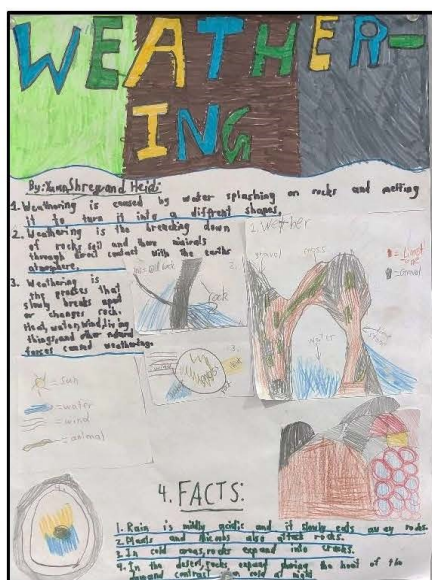 WEATHER-
ING
By: and Heidi
1. Weathering is caused by water splashing on rocks and melting
it to turn it into a different shapes,
2. Weathering is the breaking down
of rocks soil and there minirals
through direct contact with the earths
atmosphere,
3. Weathering is
the process that
slowly breaks apart
or changes rock.
water, wind, living
things, and other natural
forces caused weathering.
1. Weather
gravel
= Gravel
water
Rock
= Sun
= water
= wind
= animal
4. FACTS:
1. Rain is mildly acidic and it slowly eats away rocks.
2. Plants and also attack rocks.
3. In cold areas, rocks expand into cracks.
4. In the desert, rocks expand during the heat of the
day and contract cold at night